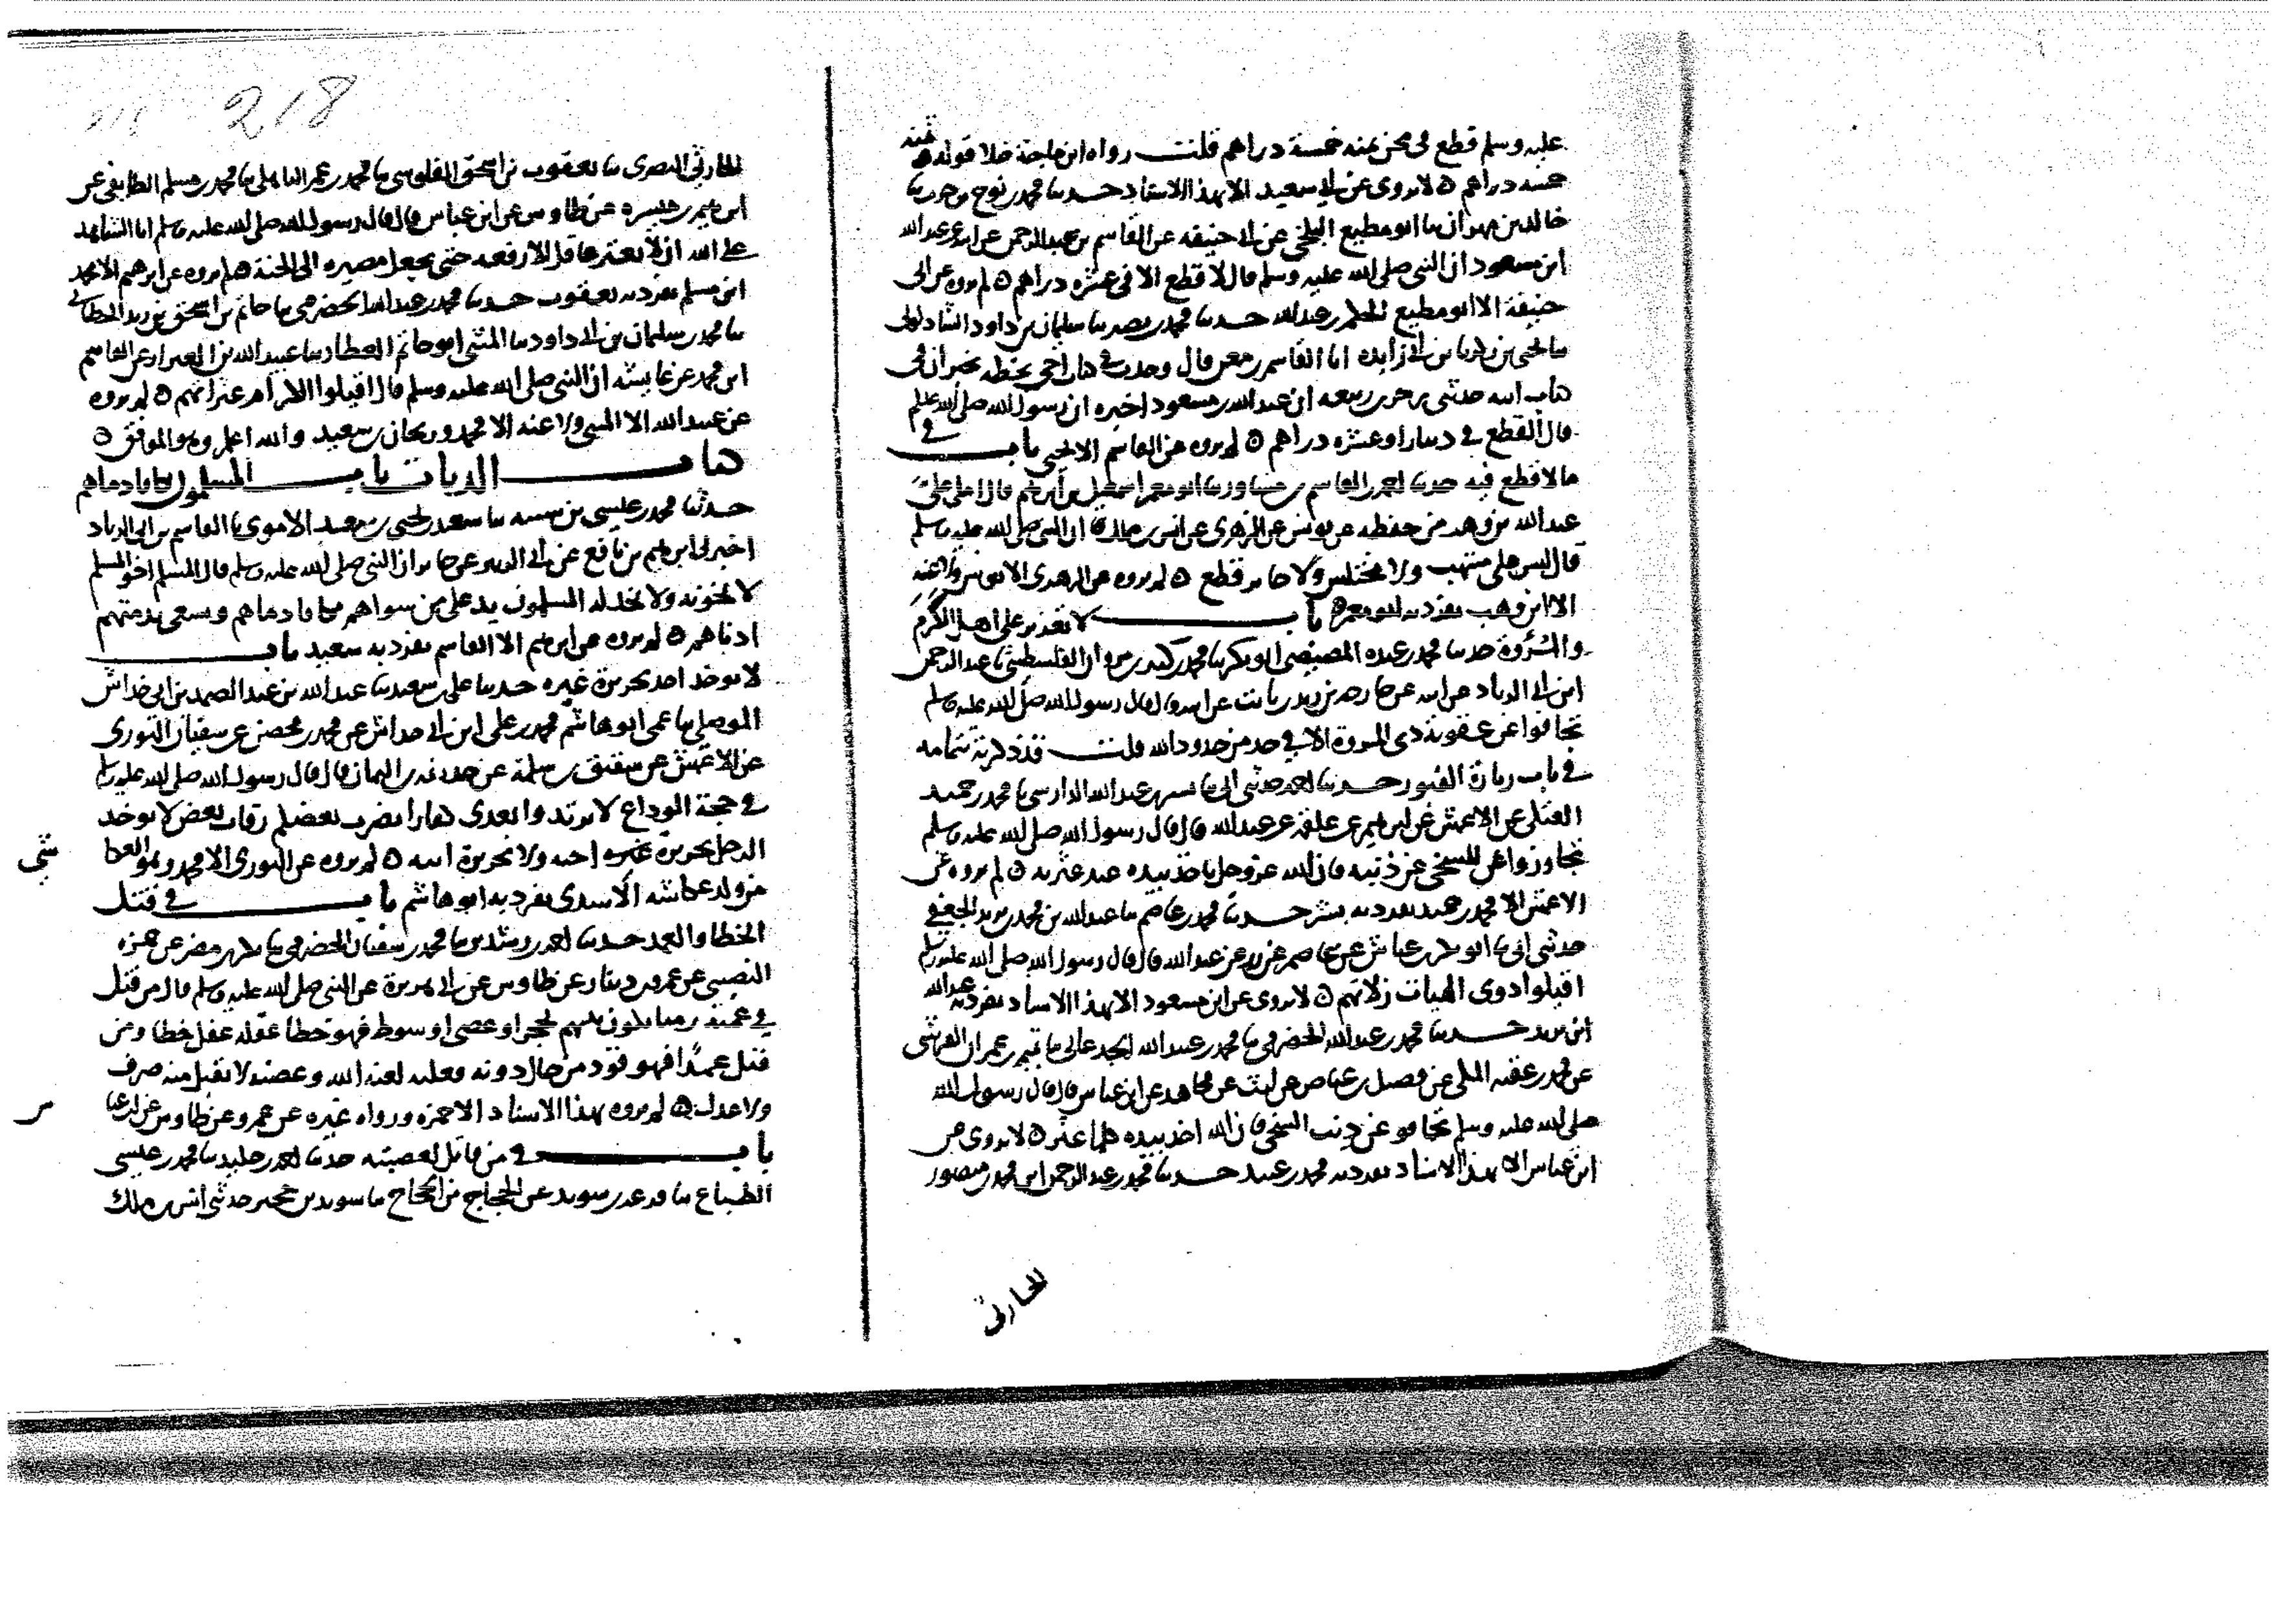 عليه وسلم قطع في مجن ثمنه خمسة دراهم قلت رواه ابن ماجة خلا قوله ثمنه
خمسة دراهم ه لا يروى عن ابي سعيد الا بهذا الاسناد حدثنا محمد بن نوح بن حرب ثنا
خالد بن مهران ثنا ابو مطيع البلخي عن ابي حنيفه عن القاسم بن عبد الرحمن عن ابيه عن عبد الله
ابن مسعود ان النبي صلى الله عليه وسلم قال لا قطع الا في عشره دراهم ه لم يروه عن ابي
حنيفة الا ابو مطيع الحكم بن عبد الله حدثنا محمد بن نصر ثنا سليمان بن داود الشاذكوني
ثنا يحيى بن زكريا بن ابي زايده انا القاسم بن معن قال وجدت في كتاب اخي بخطه
كتاب ابيه حدثني ان عبد الله بن مسعود اخبره ان رسول الله صلى الله عليه وسلم
قال القطع في دينار او عشره دراهم ه لم يروه عن القاسم الا يحيى باب في
ما لا قطع فيه حدثنا احمد بن القاسم بن مساور ثنا ابو معمر اسمعيل بن ابرهيم قال املى علي
عبد الله بن وهب من حفظه عن يونس عن الزهري عن انس بن مالك ان النبي صلى الله عليه وسلم
قال ليس على منتهب ولا مختلس ولا خاين قطع ه لم يروه عن الزهري الا يونس ولا عنه
الا ابن وهب تفرد به ابو معمر ه باب لا تعزير على اهل الكرم
والمروة حدثنا محمد بن عبده المصيصي ابو بكر ثنا محمد بن كثير بن مروان الفلسطيني ثنا عبد الرحمن
ابن ابي الزناد عن ابيه عن خارجه بن زيد بن ثابت عن ابيه قال قال رسول الله صلى الله عليه وسلم
تجافوا عن عقوبة ذي المروة الا في حد من حدود الله قلت فذكر بتمامه
في باب زيارة القبور حدثنا احمد حدثني ابي ثنا بشر بن عبد الله الدارسي ثنا محمد بن حميد
العتكي عن الاعمش عن ابرهيم عن علقمه عن عبد الله قال قال رسول الله صلى الله عليه وسلم
تجاوزوا عن للسخي عن ذنبه فان الله عز وجل ياخذ بيده عند عثرته ه لم يروه عن
الاعمش الا محمد بن حميد تفرد به بشر حدثنا محمد بن عاصم ثنا عبد الله بن محمد بن يزيد الجعفي
حدثني ابي ثنا ابو بكر بن عياش عن عاصم عن زر عن عبد الله قال قال رسول الله صلى الله عليه وسلم
اقيلوا ذوي الهيات زلاتهم ه لا يروى عن ابن مسعود الا بهذا الاسناد تفرد به عبد الله
ابن يزيد حدثنا محمد بن عبد الله الحضرمي ثنا محمد بن عبد الله الجدعاني ثنا تميم بن عمران القرشي
عن محمد بن عقبه المكي عن فضيل بن عياض عن ليث عن مجاهد عن ابن عباس قال قال رسول الله
صلى الله عليه وسلم تجافوا عن ذنب السخي فان الله اخذ بيده كلما عثر ه لا يروى عن
ابن عباس الا بهذا الاسناد تفرد به محمد بن عبد حدثنا محمد بن عبد الرحمن ابن محمد بن منصور
الحارثي
218
الحارثي البصري ثنا يعقوب بن اسحق القلوسي ثنا محمد بن عمر ثنا محمد بن مسلم الطايفي عن
ابرهيم بن ميسره عن طاوس عن ابن عباس قال قال رسول الله صلى الله عليه وسلم انا الشاهد
على الله ان لا يعثر عاقل الا رفعه حتى يجعل مصيره الى الجنة ه لم يروه عن ابرهيم الا محمد
ابن مسلم تفرد به يعقوب حدثنا محمد بن عبد الله الحضرمي ثنا حاتم بن اسحق
ثنا محمد بن سليمان بن ابي داود ثنا المثنى ابو حاتم العطار ثنا عبيد الله بن العيزار عن القاسم
ابن محمد عن عايشه ان النبي صلى الله عليه وسلم قال اقيلوا الكرام عثراتهم ه لم يروه
عن عبيد الله الا المثنى ولا عنه الا محمد وريحان بن سعيد والله اعلم وهو الموفق ه
كتاب الديات باب المسلمون تتكافا دماهم
حدثنا محمد بن عيسى بن شيبه ثنا سعيد بن يحيى بن سعيد الاموي ثنا القاسم بن ابي الزناد
اخبرني ابرهيم بن نافع عن ابي الزبير عن جابر ان النبي صلى الله عليه وسلم قال المسلم اخو المسلم
لا يخونه ولا يخذله المسلمون يد على من سواهم تتكافا دماهم ويسعى بذمتهم
ادناهم ه لم يروه عن ابرهيم الا القاسم تفرد به سعيد باب
لا يوخذ احد بجريرة غيره حدثنا علي بن سعيد ثنا عبد الله بن عبد الصمد بن ابي خداش
الموصلي ثنا عمي ابو هاشم محمد بن علي ابن ابي خداش عن محمد بن محصن عن سفيان الثوري
عن الاعمش عن شقيق بن سلمة عن حذيفه بن اليمان قال قال رسول الله صلى الله عليه وسلم
في حجة الوداع لا ترتدوا بعدي كفارا يضرب بعضكم رقاب بعض لا يوخذ
الرجل بجريرة اخيه ولا بجريرة ابيه ه لم يروه عن الثوري الا محمد وهو العكاشي
من ولد عكاشه الاسدي تفرد به ابو هاشم باب في قتل
الخطا والعمد حدثنا احمد بن رشدين ثنا محمد بن سفيان الحضرمي ثنا بكر بن مضر عن حمزه
النصيبي عن عمرو بن دينار عن طاوس عن ابي هريرة عن النبي صلى الله عليه وسلم قال من قتل
في عمية رميا يكون بينهم بحجر او عصى او سوط فهو خطا عقله عقل خطا ومن
قتل عمدا فهو قود من حال دونه فعليه لعنة الله وغضبه لا يقبل منه صرف
ولا عدل ه لم يروه بهذا الاسناد الا حمزه ورواه غيره عن عمرو عن طاوس عن ابن عباس
باب في من قاتل لعصبيته حدثنا احمد بن خليد ثنا محمد بن عيسى
الطباع ثنا قزعه بن سويد عن الحجاج بن الحجاج ثنا سويد بن حجير حدثني انس بن ملك